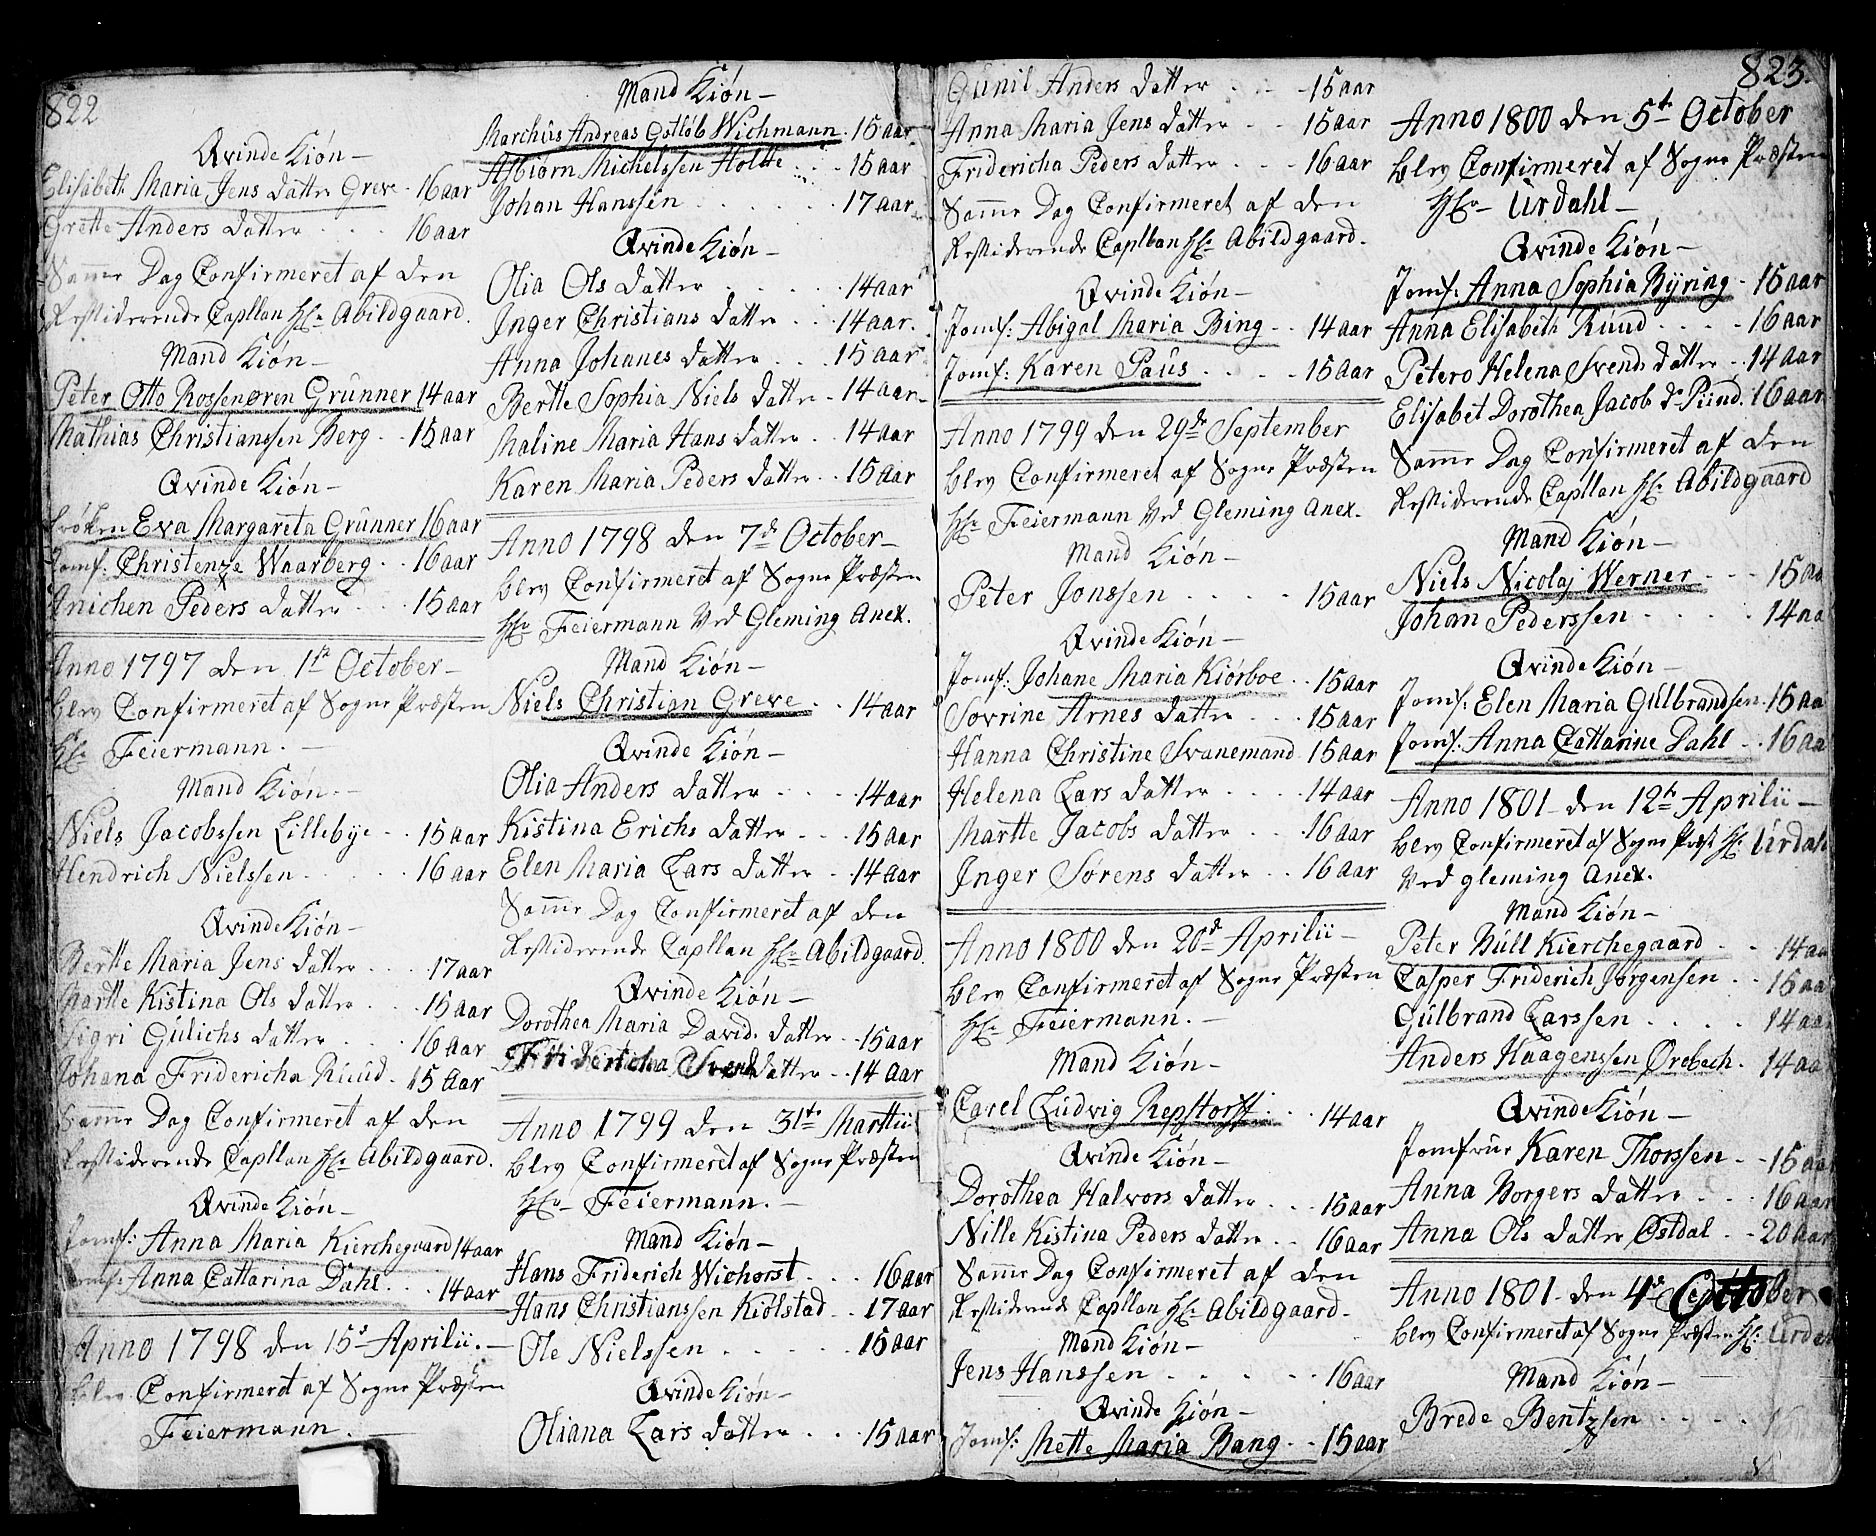 822
Qvinde Kión
Elisabeth Maria Jens datter Greve - 16 aar
Grette Anders datter . . . 16 aar
Samme Dag Confirmeret af den
Restiderende Capllan Hr. Abildgaard.
Mand Kión
Peter Otto Rossenøren Grúnner 14 aar
Mathias Christianssen Berg . . 15 aar
Qvinde Kión
Fróken Eva Margareta Grúnner 16 aar
Jomf: Christenze Waarberg . . 16 aar
Anichen Peders datter . . . 15 aar
Anno 1797 den 1st October
blev Confirmeret af Sogne Præsten
Hr. Feiermann.
Mand Kión
Niels Jacobssen Lillebÿe . . 15 aar
Hendrich Nielssen . . . 16 aar
Qvinde Kión
Bertte Maria Jens datter . . . 17 aar
Martte Kistina Ols datter . . . 15 aar
Sigri Gúlichs datter . . . 16 aar
Johana Fridericha Ruúd . 15 aar
Samme Dag Confirmeret af den
Restiderende Capllan Hr. Abildgaard.
Qvinde Kión
Jomf: Anna Maria Kierchegaard 14 aar
Jomf: Anna Cattarina Dahl . . . 14 aar
Anno 1798 den 15d Aprilii.
blev Confirmeret af Sogne Præsten
Feiermann.
Mand Kión
Marchús Andreas Gotlób Wichmann . 15 aar
Asbiórn Michelssen Holtte . . . 15 aar
Johan Hanssen . . . 17 aar
Qvinde Kión
Olia Ols datter . . . 14 aar
Inger Christians datter . . . 14 aar.
Anna Johanes datter . . . 15 aar
Bertte Sophia Niels datter . 14 aar
Maline Maria Hans datter . . 14 aar
Karen Maria Peders datter . . 15 aar
Anno 1798 den 7d October
blev Confirmeret af Sogne Præsten
Hr. Feiermann ved Gleming Anex.
Mand Kión
Niels Christian Greve . . 14 aar
Qvinde Kión
Olia Anders datter . . . 14 aar
Kistina Erichs datter . . . 15 aar
Elen Maria Lars datter . . 14 aar
Samme Dag Confirmeret af den
Restiderende Capllan Hr. Abildgaard.
Qvinde Kión
Dorothea Maria Davids datter . . 15 aar
Fridericha datter . . 14 aar
Anno 1799 den 31te Marttii
blev Confirmeret af Sogne Præsten
Hr. Feiermann.
Mand Kión
Hans Friderich Wichorst . . . 16 aar
Hans Christianssen Kiólstad . . 17 aar
Ole Nielssen . . . 15 aar
Qvinde Kión
Oliana Lars datter . . . 15 aar
823.
Gúnil Anders datter . . . 15 aar
Anna Maria Jens datter . . 15 aar
Fridericha Peders datter . . . 16 aar
Samme Dag Confirmeret af den
Restiderende Capllan Hr. Abildgaard.
Qvinde Kión
Jomf: Abigal Maria Bing . . 14 aar
Jomf: Karen Paús . . . 15 aar
Anno 1799 den 29de September
blev Confirmeret af Sogne Præsten
Hr. Feiermann ved Gleming Anex.
Mand Kión
Peter Jonssen . . . 15 aar
Qvinde Kión
Jomf: Johane Maria Kiórboe . . 15 aar
Sovrine Arnes datter . . . 15 aar
Hanna Christine Svanemand 15 aar
Helena Lars datter . . . 14 aar
Martte Jacobs datter . . . 16 aar
Inger Sórens datter . . 16 aar
Anno 1800 den 20d Aprilii
blev Confirmeret af Sogne Præsten
Hr. Feiermann.
Mand Kión
Carel Lúdvig Repstorff . . . 14 aar
Qvinde Kión
Dorothea Halvors datter . . . 15 aar
Nille Kistina Peders datter . . 16 aar
Samme Dag Confirmeret af den
Restiderende Capllan Hr. Abildgaard.
Mand Kión
Jens Hanssen . . . 16 aar
Qvinde Kión
Jomf: Mette Maria Bang . . 15 aar
Anno 1800 den 5te October
blev Confirmeret af Sogne Præsten
Hr. Úrdahl
Qvinde Kión
Jomf: Anna Sophia Bÿring . 15 aar
Anna Elisabeth Rúud . . . 16 aar
Petero Helena Svends datter . . 14 aar
Elisabet Dorothea Jacob dr Púnd . 16 aar
Samme Dag Confirmeret af den
Restiderende Capllan Hr. Abildgaard
Mand Kión
Niels Nicolaj Werner . . . 15 aa
Johan Pederssen . . . 14 aa
Qvinde Kión
Jomf: Elen Maria Gúlbrandsen . 15 aa
Jomf: Anna Cattarine Dahl . . 16 aa
Anno 1801 den 12te Aprilii
blev Confirmeret af Sogne Præst Hr. Úrdal
ved gleming Anex.
Mand Kión
Peter Búll Kierchegaard . . 14 aa
Casper Friderich Jórgensen . . 15 aa
Gúlbrand Larssen . . . 14 aa
Anders Haagenssen Ørebech . 14 aa
Qvinde Kión
Jomfrue Karen Thorssen . . 15 aa
Anna Borgers datter . . . 16 aar
Anna Ols datter Østdal . . 20 aar
Anno 1801 den 4d October
blev Confirmeret af Sogne Præsten Hr. Úrdal
Mand Kión
Brede Bentzsen . . .